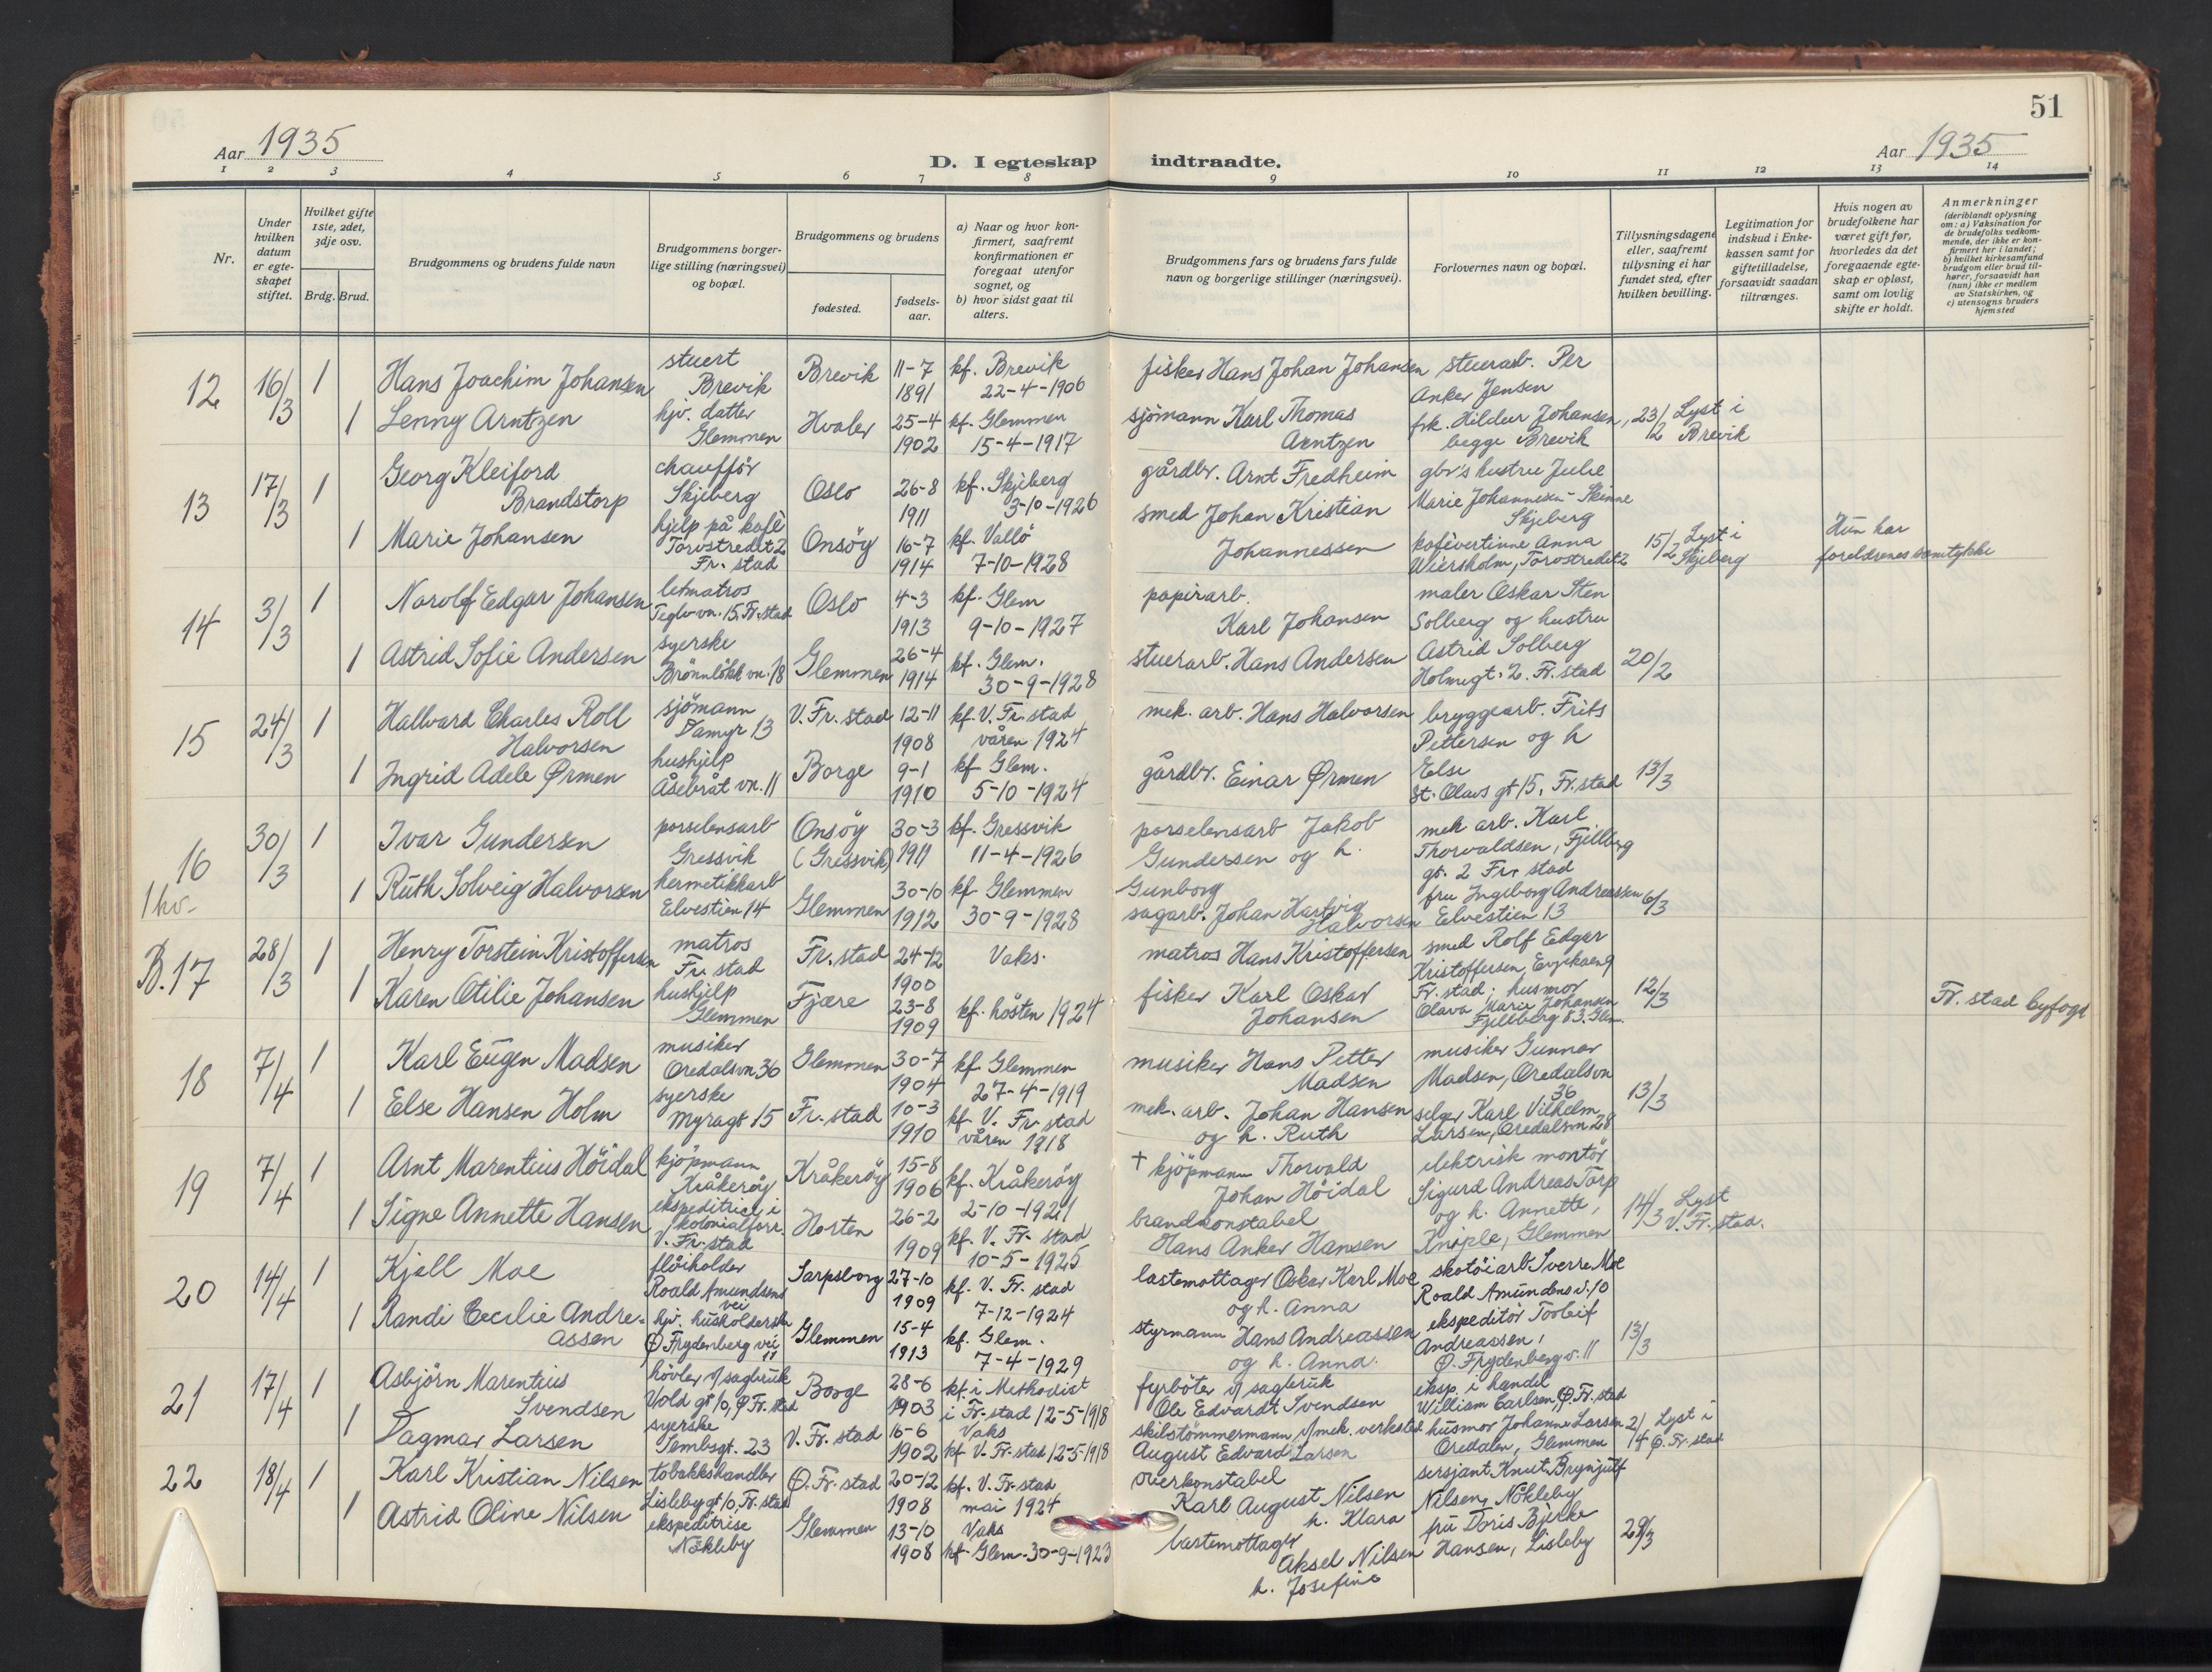 51
Aar 1935
D. I egteskap indtraadte.
Aar 1935
1 2 3 4 5 6 7 8 9 10 11 12 13 14
Nr.
Under hvilken datum er egte- skapet stiftet.
Hvilket gifte 1ste, 2det, 3dje osv.
Brdg. Brud.
Brudgommens og brudens fulde navn
Brudgommens borger- lige stilling (næringsvei) og bopæl.
Brudgommens og brudens
fødested.
fødsels- aar.
a) Naar og hvor kon- firmert, saafremt konfirmationen er foregaat utenfor sognet, og
b) hvor sidst gaat til alters.
Brudgommens fars og brudens fars fulde navn og borgerlige stillinger (næringsvei).
Forlovernes navn og bopæl.
Tillysningsdagene eller, saafremt tillysning ei har fundet sted, efter hvilken bevilling.
Legitimation for indskud i Enke- kassen samt for giftetilladelse, forsaavidt saadan tiltrænges.
Hvis nogen av brudefolkene har været gift før, hvorledes da det foregaaende egte- skap er opløst, samt om lovlig skifte er holdt.
Anmerkninger
(deriblandt oplysning om: a) Vaksination for de brudefolks vedkom- mende, der ikke er kon- firmert her i landet;
b) hvilket kirkesamfund brudgom eller brud til- hører, forsaavidt han (hun) ikke er medlem av Statskirken, og
c) utensogns bruders hjemsted
12 16/3 1 Hans Joachim Johansen stuert Brevik Brevik 11-7 1891 kf. Brevik 22-4-1906 fisker Hans Johan Johansen stuerarb. Per Anker Jensen
1 Lenny Arntzen hjv. datter Glemmen Hvaler 25-4 1902 kf. Glemmen 15-4-1917 sjömann Karl Thomas Arntzen frk. Hildur Johansen, begge Brevik 23/2 Lyst i Brevik
13 17/3 1 Georg Kleiford Brandstorp chaufför Skjeberg Oslo 26-8 1911 kf. Skjeberg 3-10-1926 gårdbr. Arnt Fredheim gbr's hustru Julie Marie Johannesen Skjeberg
1 Marie Johansen hjelp på kafè Torvstredet 2 Fr. stad Onsöy 16-7 1914 kf. Vallö 7-10-1928 smed Johan Kristian Johannessen kafèvertinne Anna Wiersholm, Torvstredet 2 15/2 Lyst i Skjeberg Hun har foreldrenes samtykke
14 3/3 1 Narolf Edgar Johansen letmatros Teglv.vn. 15, Fr. stad Oslo 4-3 1913 kf. Glem 9-10-1927 papirarb. Karl Johansen maler Oskar Sten Solberg og hustru
1 Astrid Sofie Andersen syerske Brönnlökk vn. 18 Glemmen 26-4 1914 kf. Glem. 30-9-1928 stuerarb. Hans Andersen Astrid Solberg Holmegt. 2. Fr. stad 20/2
15 24/3 1 Hallvard Charles Roll Halvorsen sjömann Damyr 13 V. Fr. stad 12-11 1908 kf. V. Fr. stad våren 1924 mek. arb. Hans Halvorsen bryggearb. Frits Pettersen og h
1 Ingrid Adele Ørmen hushjelp Åsebråt vn. 11 Borge 9-1 1910 kf Glem. 5-10-1924 gårdbr. Einar Ørmen Else St. Olavs gt 15, Fr. stad 13/3
16 30/3 1 Ivar Gundersen porselensarb Gressvik Onsöy (Gressvik) 30-3 1911 kf. Gressvik 11-4-1926 porselensarb Jakob Gundersen og h. Gunborg mek arb. Karl Thorvaldsen, Fjellberg gt. 2 Fr. stad
1 hv. 1 Ruth Solveig Halvorsen hermetikkarb Elvestien 14 Glemmen 30-10 1912 kf Glemmen 30-9-1928 sagarb. Johan Hartvig Halvorsen fru Ingeborg Andreassen Elvestien 13 6/3
B. 17 28/3 1 Henry Torstein Kristoffersen matros Fr. stad Fr. stad 24-12 1900 Vaks. matros Hans Kristoffersen smed Rolf Edgar Kristoffersen,
1 Karen Otilie Johansen hushjelp Glemmen Fjære 23-8 1909 kf. hösten 1924 fisker Karl Oskar Johansen Fr. stad; husmor Olava Marie Johansen Fjellberg 83. Glem. 12/3 Fr. stad byfogd
18 7/4 1 Karl Eugen Madsen musiker Oredalsvn 36 Glemmen 30-7 1904 kf Glemmen 27-4-1919 musiker Hans Petter Madsen musiker Gunnar Madsen, Oredalsvn 36
1 Else Hansen Holm syerske Myragt 15 Fr. stad 10-3 1910 kf. V. Fr. stad våren 1918 mek. arb. Johan Hansen og h. Ruth selger Karl Vilhelm Larsen, Oredalsvn 28 13/3
19 7/4 1 Arnt Marentius Höidal kjöpmann Kråkeröy Kråkeröy 15-8 1906 kf. Kråkeröy 2-10-1921 † kjöpmann Thorvald Johan Höidal elektrisk montör Sigurd Andreas Torp
1 Signe Annette Hansen ekspeditrice i kolonialforr. V. Fr. stad Horten 26-2 1909 kf. V. Fr. stad 10-5-1925 brandkonstabel Hans Anker Hansen og h. Annette, Kniple, Glemmen 14/3 Lyst V. Fr. stad.
20 14/4 1 Kjell Moe flöiholder Roald Amundsens vei Sarpsborg 27-10 1909 kf. V. Fr. stad 7-12-1924 lastemottager Oskar Karl Moe og h. Anna skotöiarb Sverre Moe Roald Amundens v. 10
1 Randi Cecilie Andre- assen hjv. husholderske Ø Frydenberg vei 11 Glemmen 15-4 1913 kf. Glem. 7-4-1929 styrmann Hans Andreassen og h. Anna. ekspeditör Torleif Andreassen, Ø. Frydenberg v. 11 13/3
21 17/4 1 Asbjörn Marentius Svendsen hövler v/ sagbruk Vold gt 10, Ø Fr. stad Borge 28-6 1903 kf. i Methodist i Fr. stad 12-5-1918 fyrböter v/ sagbruk Ole Edvardt Svendsen eksp. i handel William Carlsen, Ø. Fr. stad
1 Dagmar Larsen syerske Tembsgt. 23 V. Fr. stad 16-6 1902 Vaks kf V. Fr. stad 12-5-1918 skibstömmermann v/ mek. verksted August Edvard Larsen husmor Johanne Larsen Oredalen, Glemmen 2/4 Lyst i Ø. Fr. stad
22 18/4 1 Karl Kristian Nilsen tobakkshandler Lisleby gt 10, Fr. stad Ø. Fr. stad 20-12 1908 kf. V. Fr. stad mai 1924 overkonstabel Karl August Nilsen h. Klara sersjant Knut Brynjulf Nilsen, Nökleby
1 Astrid Oline Nilsen ekspeditrise Nökleby Glemmen 13-10 1908 Vaks kf Glem. 30-9-1923 lastemottager Aksel Nilsen h. Josefine fru Doris Bjerke Hansen, Lisleby 29/3